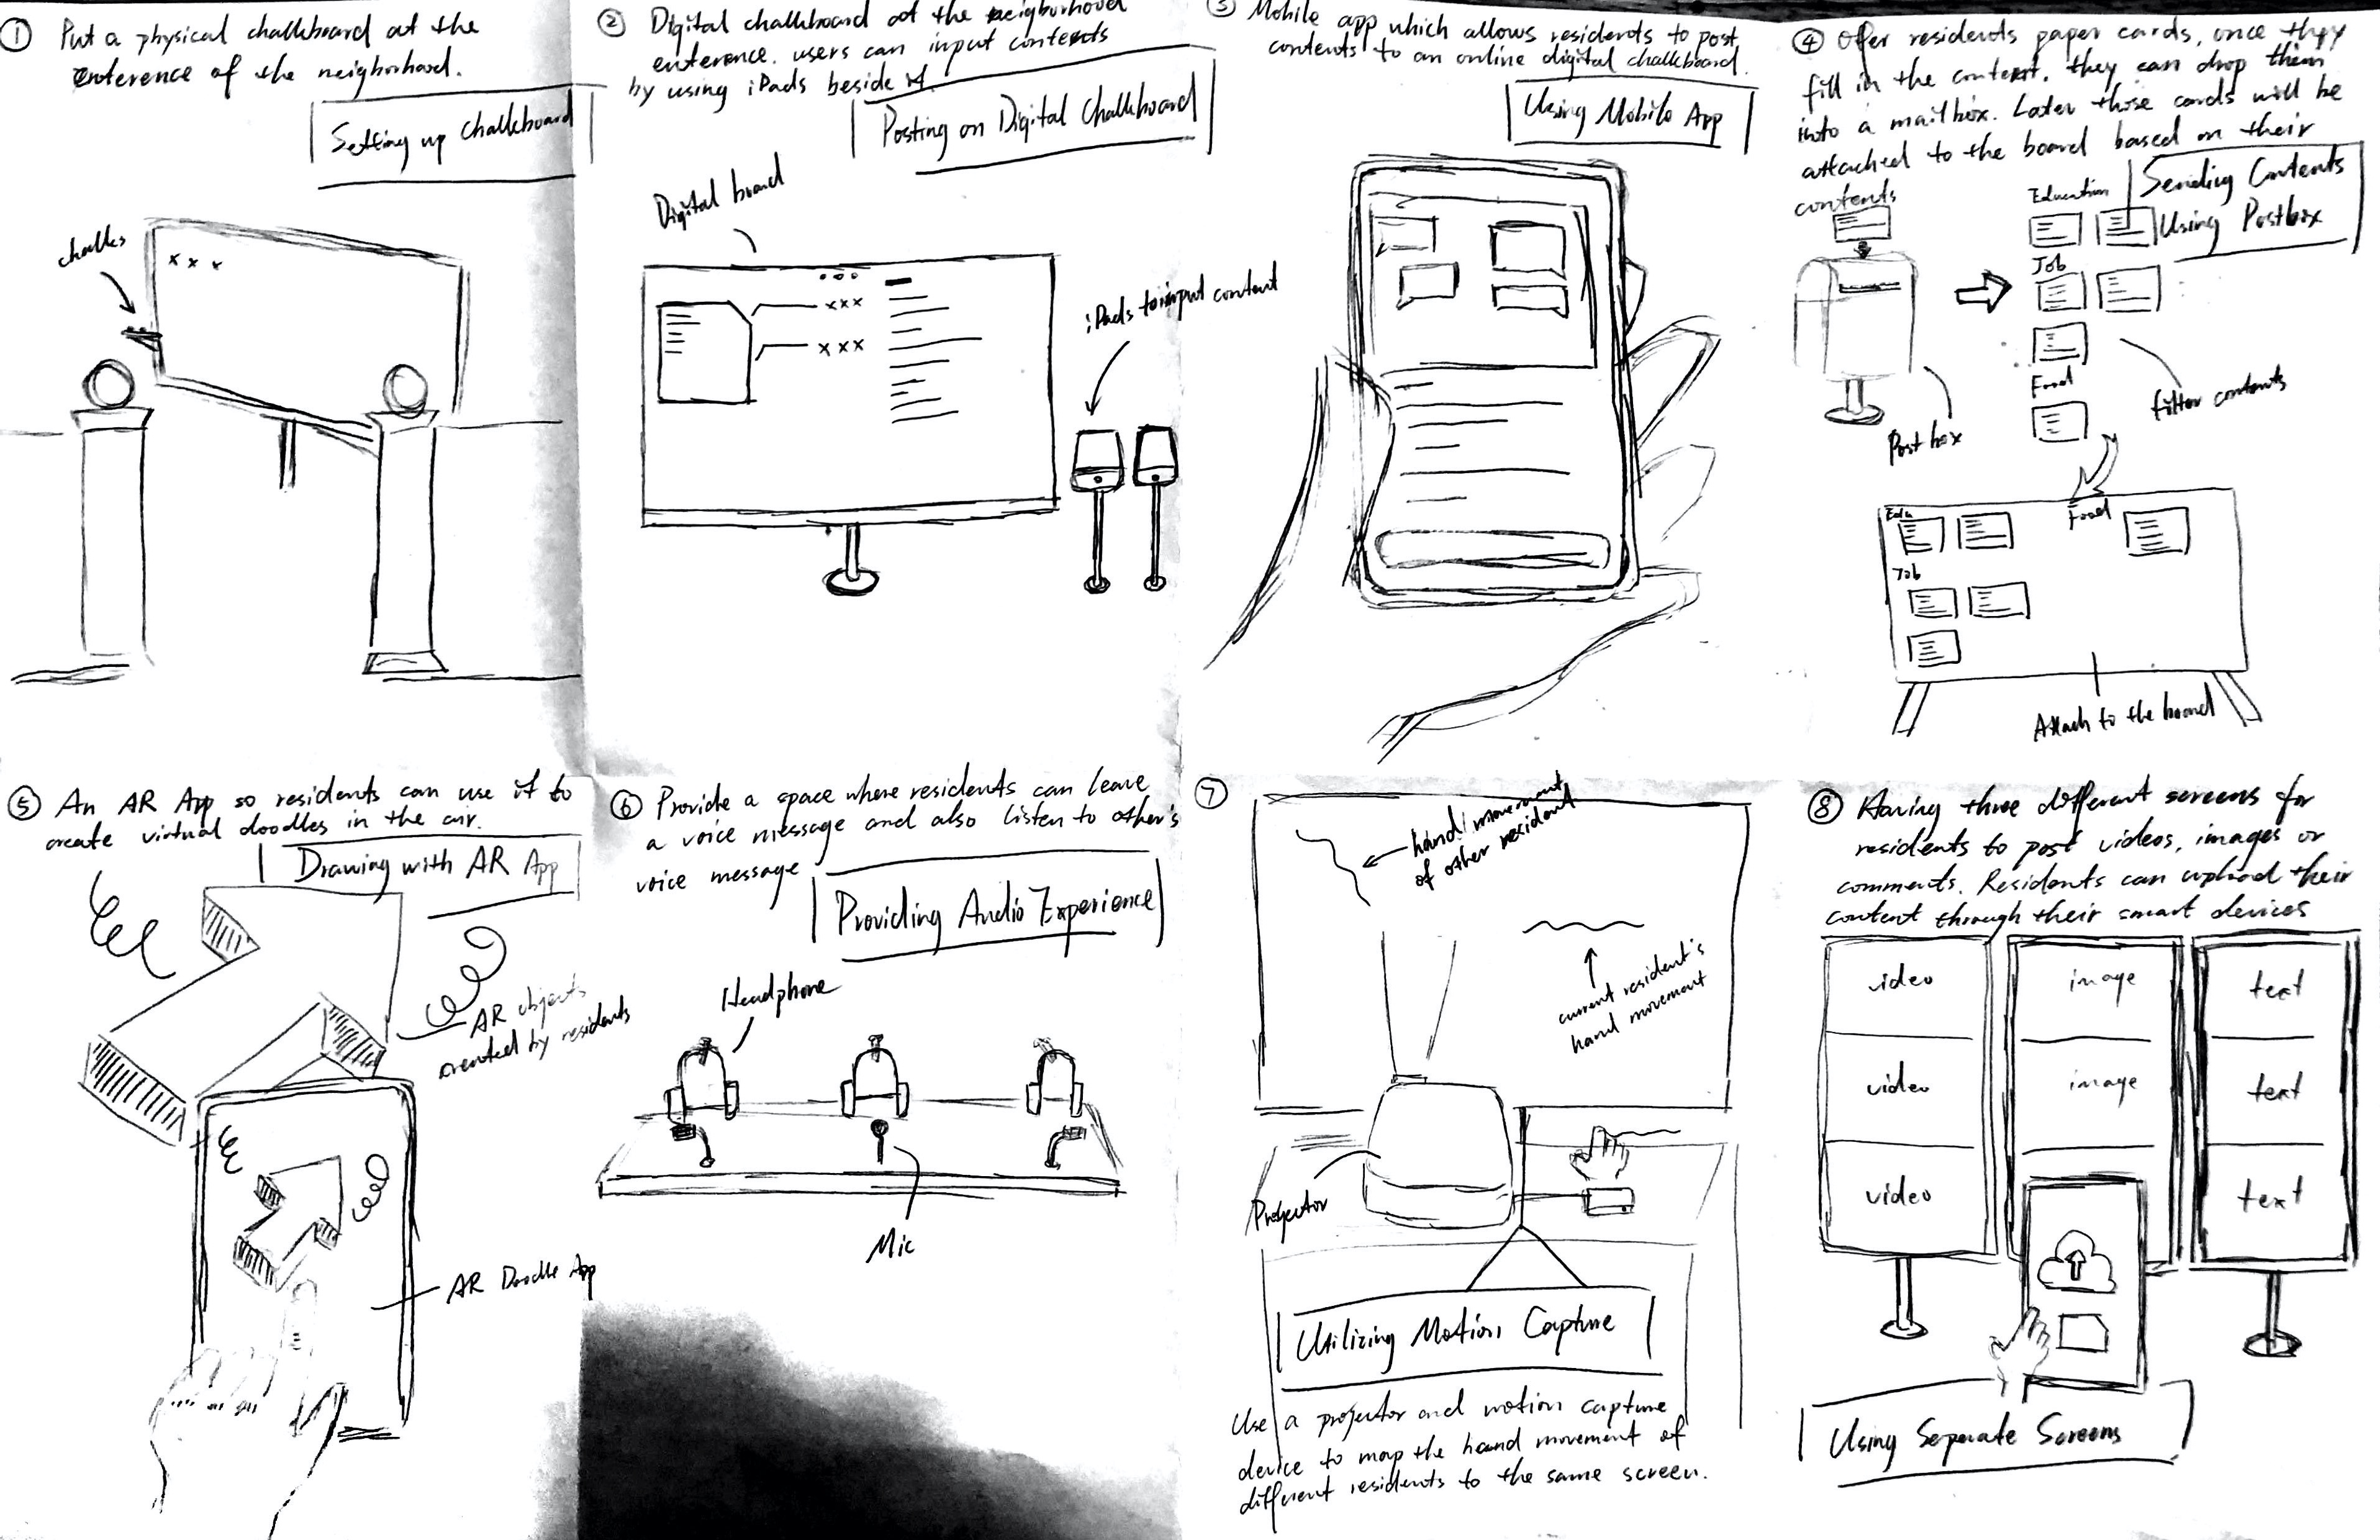 ① Put a physical chalkboard at the
enterence of the neighborhood.
Setting up chalkboard
chalks
x x x
② Digital chalkboard at the neighborhood
enterence. users can input contents
by using iPads beside it.
Posting on Digital Chalkboard
Digital board
xxx
xxx
iPads to input content
3 Mobile app which allows residents to post
contents to an online digital chalkboard.
Using Mobile App
④ Offer residents paper cards, once they
fill in the content, they can drop them
into a mailbox. Later those cards will be
attached to the board based on their
contents
Sending Contents
Using Postbox
Education
Job
Food
filter contents
Post box
Edu
Food
Job
Attach to the board
⑤ An AR App so residents can use it to
create virtual doodles in the air.
Drawing with AR App
AR objects
created by residents
AR Doodle App
⑥ Provide a space where residents can leave
a voice message and also listen to other's
voice message
Providing Audio Experience
Headphone
Mic
⑦
hand movement
of other resident
current resident's
hand movement
Projector
Utilizing Motion Capture
Use a projector and motion capture
device to map the hand movement of
different residents to the same screen.
⑧ Having three different screens for
residents to post videos, images or
comments. Residents can upload their
content through their smart devices
video
image
text
video
image
text
video
text
Using Seperate Screens